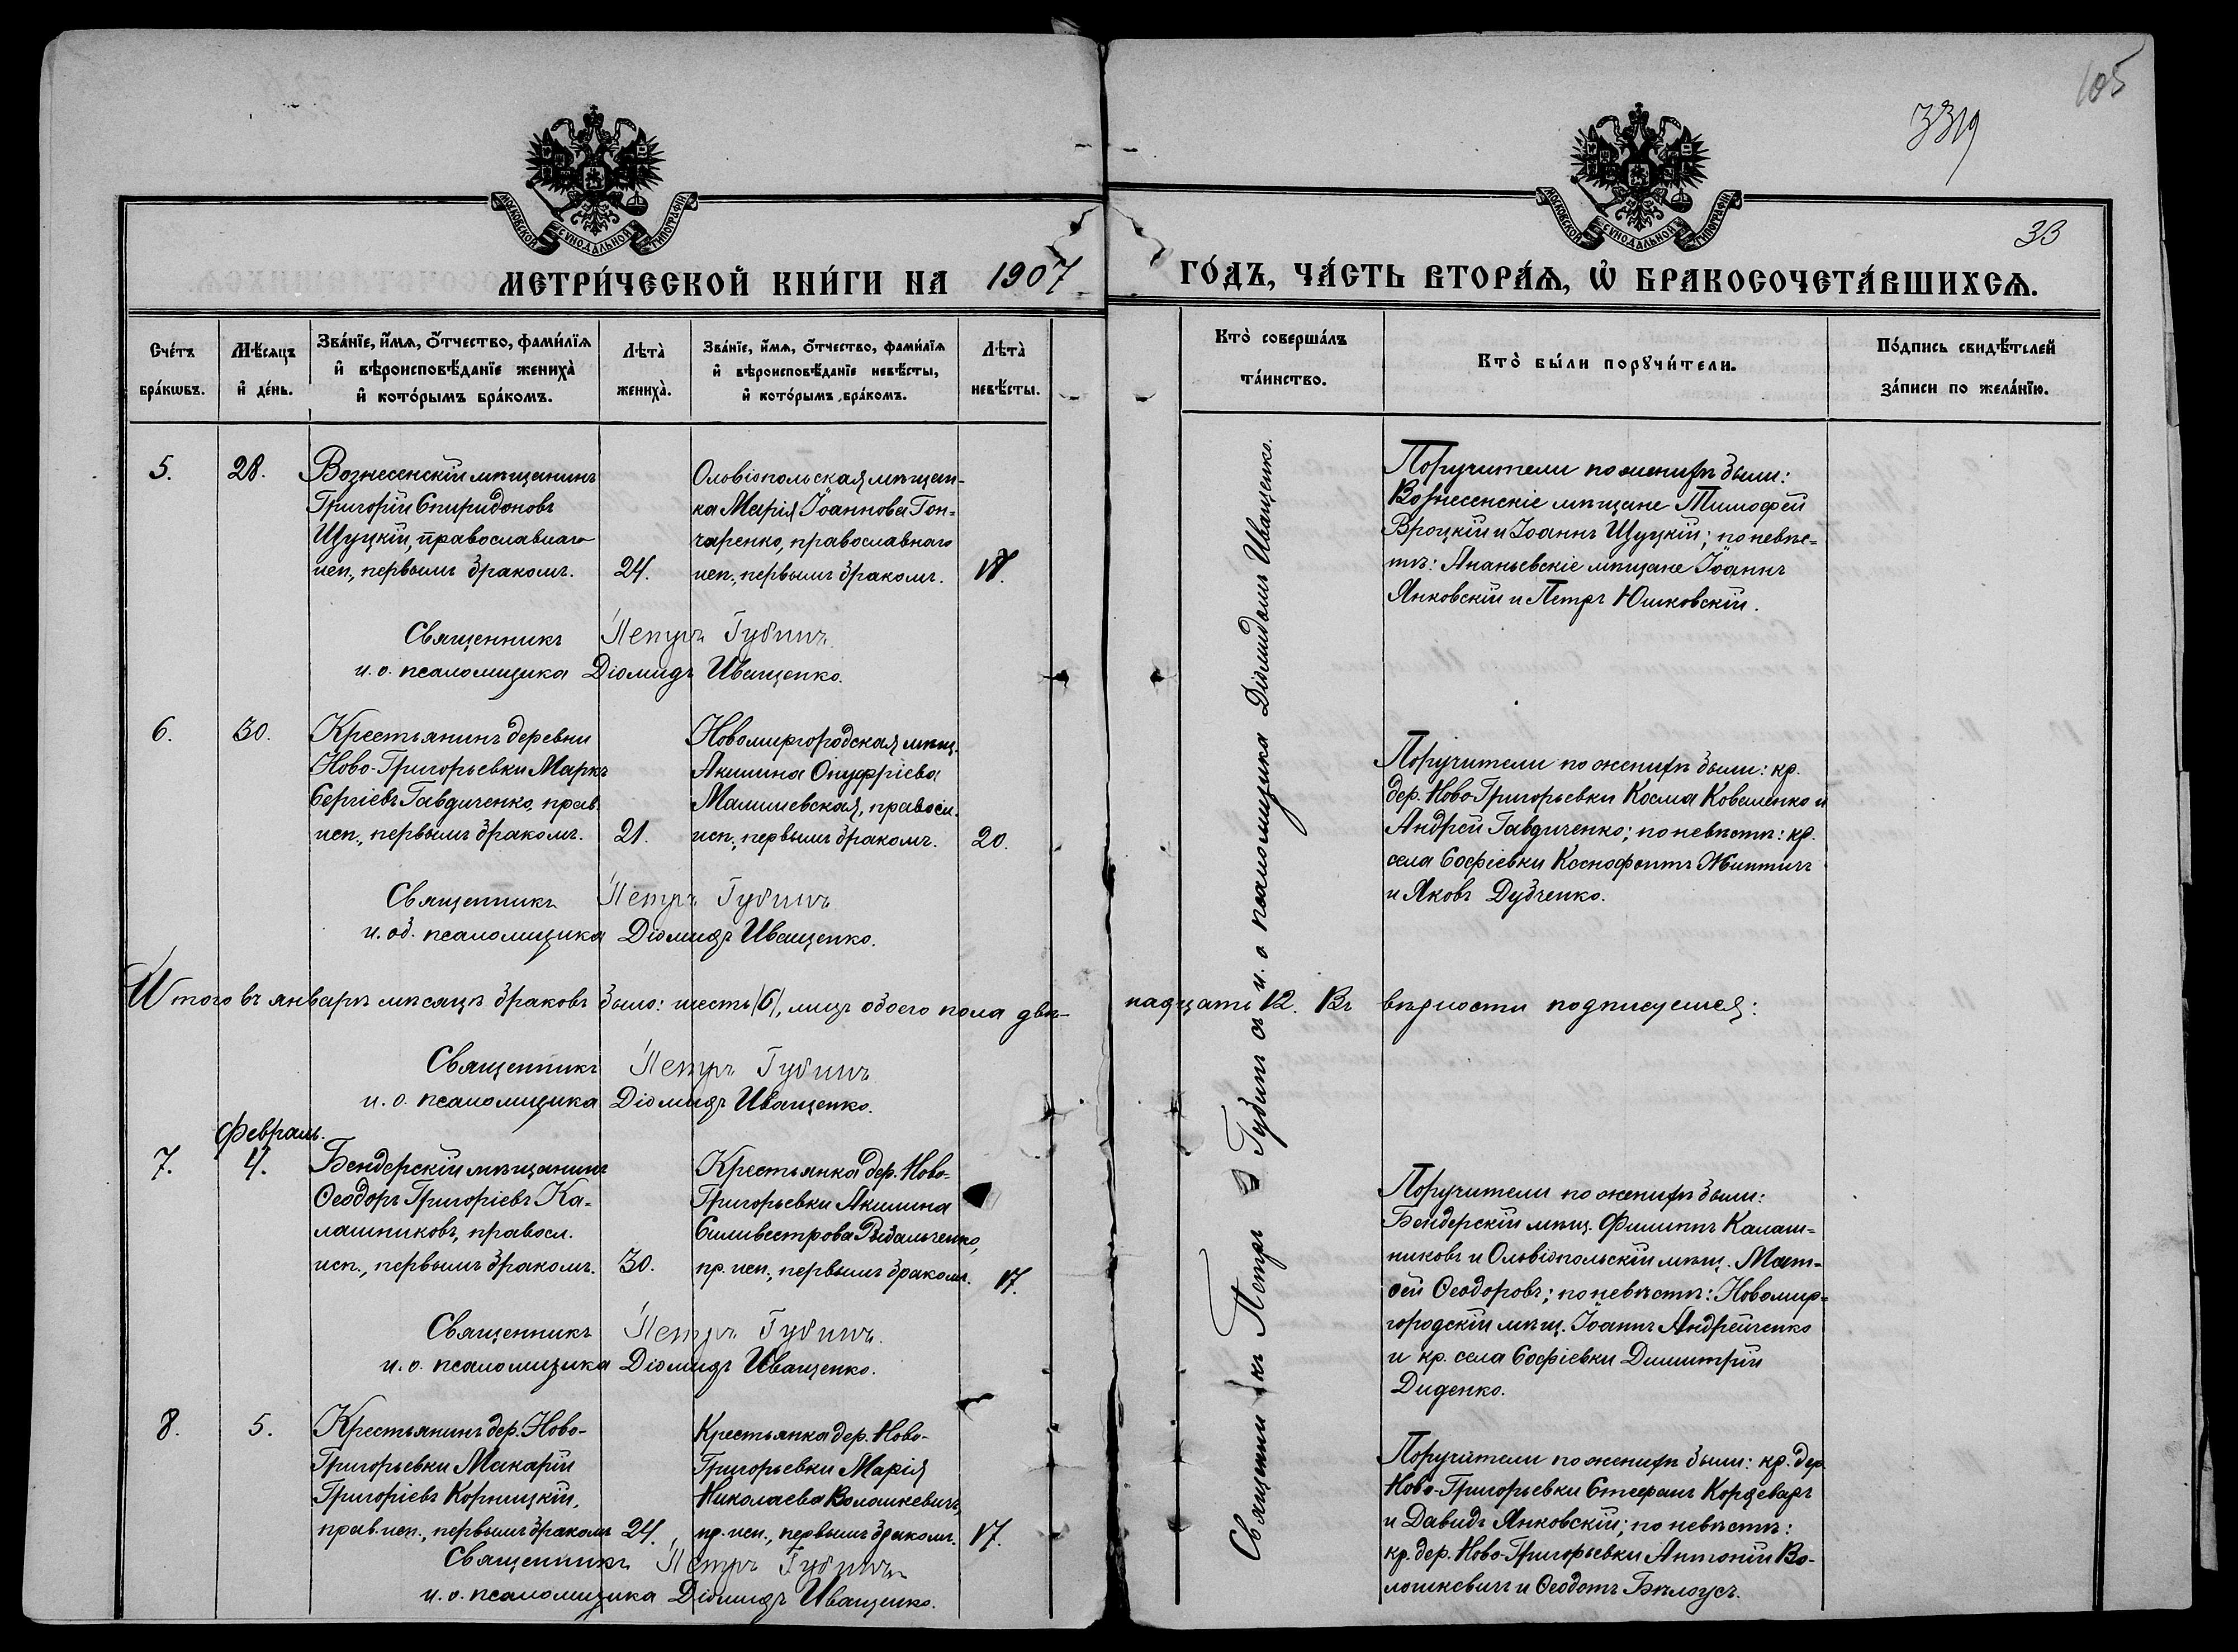 105
3319
33
МОСКОВСКОЙ СѴНОДАЛЬНОЙ ТИПОГРАФІИ
МОСКОВСКОЙ СѴНОДАЛЬНОЙ ТИПОГРАФІИ
МЕТРИ́ЧЕСКОЙ КНИ́ГИ НА 1907 ГО́ДЪ, ЧА́СТЬ ВТОРА́Я, Ѡ҆ БРАКОСОЧЕТА́ВШИХСЯ.
Сче́тъ
бра́кѡвъ.
Мѣ́сяцъ
и҆ де́нь.
Зва́нїе, и҆́мя, ѻ҆́тчество, фами́лїя
и҆ вѣроисповѣ́данїе жениха̀
и҆ кото́рымъ бра́комъ.
Лѣта̀
жениха̀.
Зва́нїе, и҆́мя, ѻ҆́тчество, фами́лїя
и҆ вѣроисповѣ́данїе невѣ́сты,
и҆ кото́рымъ бра́комъ.
Лѣта̀
невѣ́сты.
Кто̀ соверша́лъ
та́инство.
Кто̀ бы́ли порꙋчи́тели.
По́дпись свидѣ́телей
за́писи по жела́нїю.
5.
28.
Вознесенскій мѣщанинъ
Григорій Спиридоновъ
Щуцкій, православнаго
исп., первымъ бракомъ.
24.
Ольвіопольская мѣщан-
ка Марія Іоаннова Гон=
чаренко, православнаго
исп., первымъ бракомъ.
18.
Поручители по женихѣ были:
Вознесенскіе мѣщане Тимофей
Вроцкій и Іоаннъ Щуцкій; по невѣс=
тѣ: Ананьевскіе мѣщане Іоаннъ
Янковскій и Петръ Юшковскій.
Священникъ Петръ Губинъ.
и. о. псаломщика Діомидъ Иващенко.
6.
30.
Крестьянинъ деревни
Ново-Григорьевки Маркъ
Сергіевъ Гавдиченко, прав.
исп., первымъ бракомъ.
21.
Новомиргородская мѣщ.
Акилина Онуфріева
Малишевская, правосл.
исп., первымъ бракомъ.
20.
Поручители по женихѣ были: кр.
дер. Ново-Григорьевки Косма Коваленко и
Андрей Гавдиченко; по невѣстѣ: кр.
села Софіевки Ксенофонтъ
и Яковъ Дубченко.
Священникъ Петръ Губинъ
и. об. псаломщика Діомидъ Иващенко.
Итого въ январѣ мѣсяцѣ браковъ было: шесть /6/, лицъ обоего пола двѣ-надцать 12. Въ вѣрности подписуемся:
Священникъ Петръ Губинъ
и. о. псаломщика Діомидъ Иващенко.
Февраль.
7.
4.
Бендерскій мѣщанинъ
Ѳеодоръ Григоріевъ Ка=
лашниковъ, правосл.
исп., первымъ бракомъ.
30.
Крестьянка дер. Ново-
Григорьевки Акилина
Силивестрова
пр. исп., первымъ бракомъ.
17.
Поручители по женихѣ были:
Бендерскій мѣщ. Филиппъ Калаш=
никовъ и Ольвіопольскій мѣщ. Мат=
ѳей Ѳеодоровъ; по невѣстѣ: Новомир=
городскій мѣщ. Іоаннъ Андрейченко
и кр. села Софіевки Димитрій
Диденко.
Священникъ Петръ Губинъ.
и. о. псаломщика Діомидъ Иващенко.
8.
5.
Крестьянинъ дер. Ново-
Григорьевки Макарій
Григоріевъ Корницкій,
прав. исп., первымъ бракомъ
24.
Крестьянка дер. Ново-
Григорьевки Марія
Николаева Волошкевичъ,
пр. исп., первымъ бракомъ.
17.
Поручители по женихѣ были: кр. дер.
Ново-Григорьевки Стефанъ
и Давидъ Янковскій; по невѣстѣ:
кр. дер. Ново-Григорьевки Антоній Во-
лошкевичъ и Ѳеодотъ Бѣлоусъ.
Священникъ Петръ Губинъ
и. о. псаломщика Діомидъ Иващенко.
Священникъ Петръ Губинъ съ и. о псаломщика Діомидомъ Иващенко.